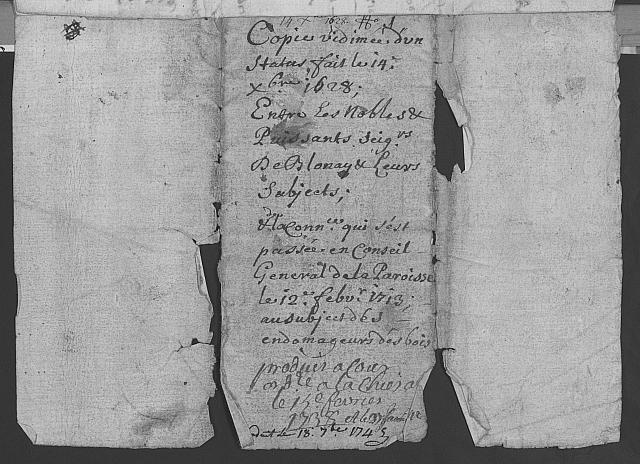 14 X 1628 No 1
Copie vidimée d'vn
Status fait le 14.
Xbre 1628;
Entre Les Nobles &
Puissants Seigrs
De Blonay & Leurs
Subjects;
& la Connce qui s'est
passée en Conseil
General de la Paroisse
le 12e febvr 1713;
au subject des
endomageurs des bois
produit a Cour
a la
le 15e fevrier
dat le 18. 7bre 1745